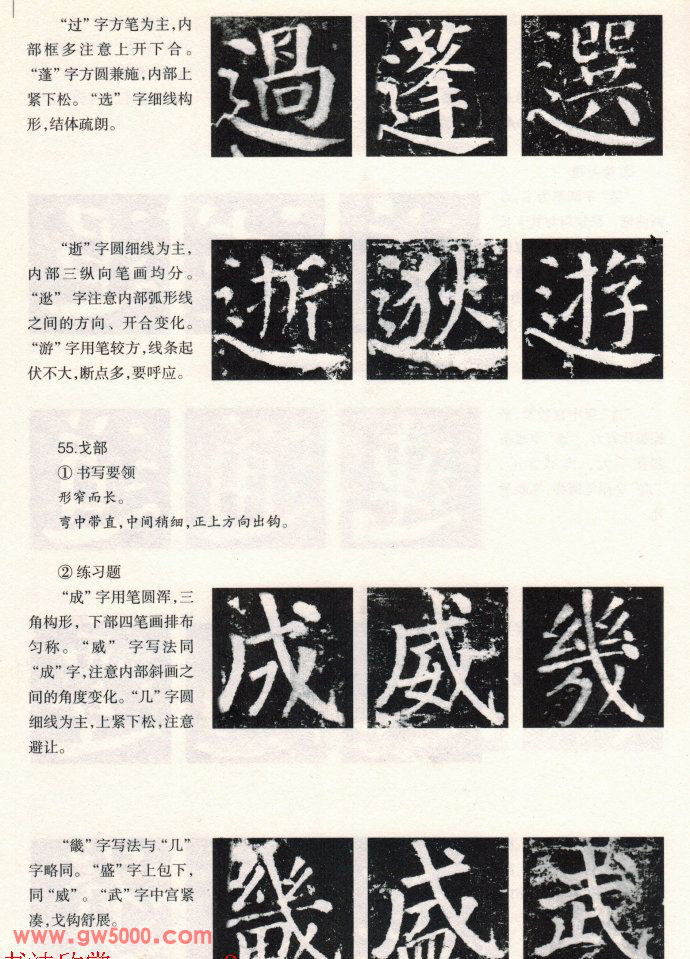 “过”字方笔为主,内
部框多注意上开下合。
“蓬”字方圆兼施,内部上
紧下松。“选”字细线构
形,结体疏朗。
過 蓬 選
“逝”字圆细线为主,
内部三纵向笔画均分。
“逖”字注意内部弧形线
之间的方向、开合变化。
“游”字用笔较方,线条起
伏不大,断点多,要呼应。
逝 逖 遊
55.戈部
① 书写要领
形窄而长。
弯中带直,中间稍细,正上方向出钩。
② 练习题
“成”字用笔圆浑,三
角构形,下部四笔画排布
匀称。“威”字写法同
“成”字,注意内部斜画之
间的角度变化。“几”字圆
细线为主,上紧下松,注意
避让。
成 威 幾
“畿”字写法与“几”
字略同。“盛”字上包下,
同“威”。“武”字中宫紧
凑,戈钩舒展。
畿 盛 武
www.gw5000.com